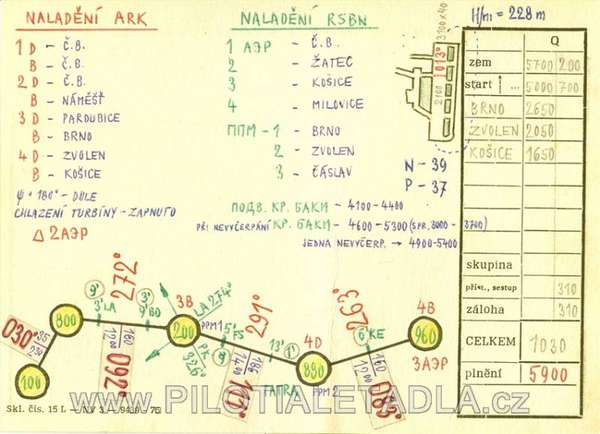 NALADĚNÍ ARK
1 D - Č.B.
B - Č.B.
2 D - Č.B.
B - NÁMĚŠŤ
3 D - PARDUBICE
B - BRNO
4 D - ZVOLEN
B - KOŠICE
Ψ + 180° - DOLE
CHLAZENÍ TURBÍNY - ZAPNUTO
Δ 2АЭР
NALADĚNÍ RSBN
1 АЭР - Č.B.
2 - ŽATEC
3 - KOŠICE
4 - MILOVICE
ППМ - 1 - BRNO
2 - ZVOLEN
3 - ČÁSLAV
ПОДВ. КР. БАКИ - 4100-4400
PŘI NEVYČERPÁNÍ КР. БАКИ - 4600-5300 (SPR. 3000 - 3700)
JEDNA NEVYČERP. → 4900-5400
3100 x 40
013°
2100
N - 39
P - 37
= 228 m
Q
zem 5700 200
start ↑ ... 5000 700
BRNO 2650
ZVOLEN 2050
KOŠICE 1650
skupina
přist., sestup 310
záloha 310
CELKEM 1030
plnění 5900
272°
3B
LA 274°
291°
263°
4B
9'
3'LA
3'
9'BO
800
200
PPM1
5'
FS
4D
6'
KE
960
030°
35
230
160
1200
092°
PK
236°
8'
186
1400
111°
13'
1'
TATRA
830
PPM2
160
1200
083°
3АЭР
100
Skl. čís. 15 L - NV 3 - 9439 - 75
WWW.PILOTIALETADLA.CZ